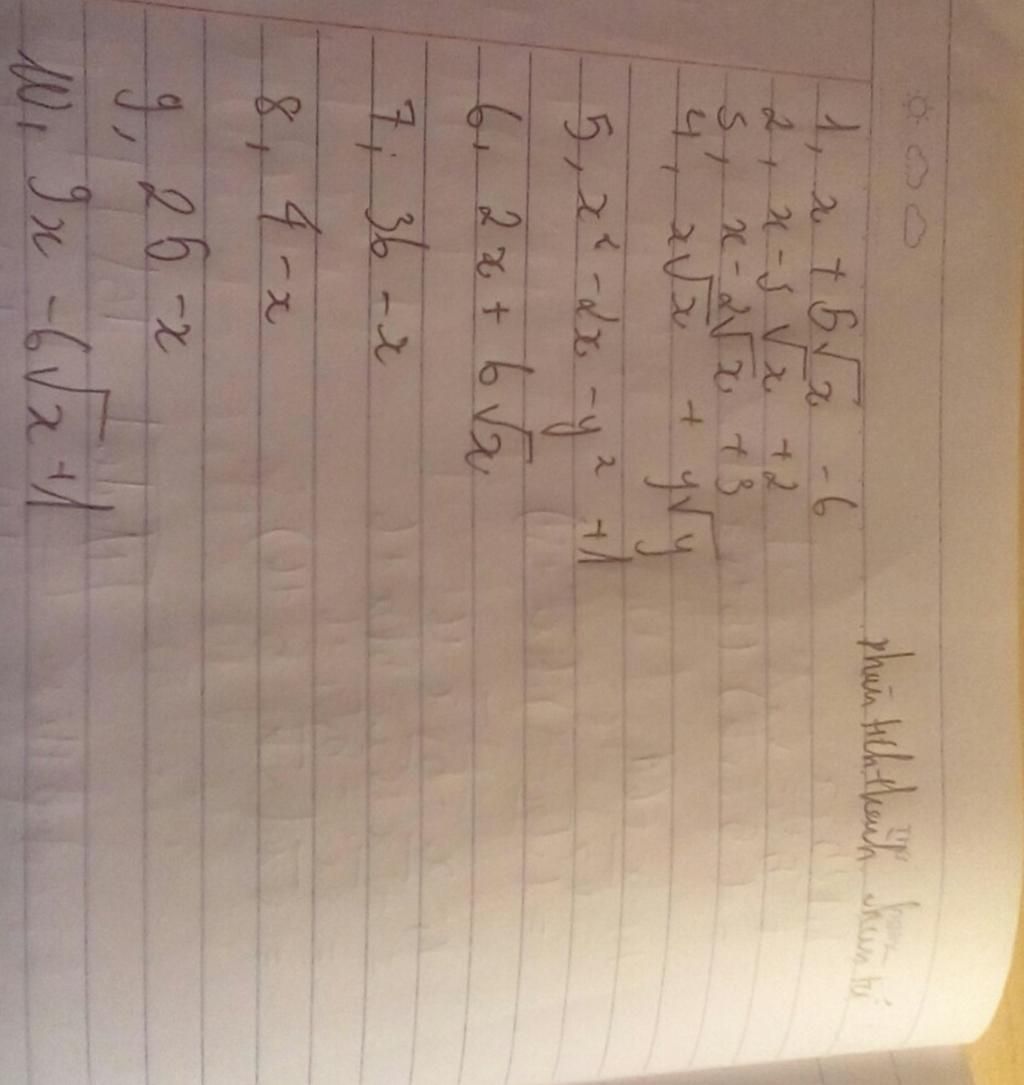 phân tích thành nhân tử
1, x + 5√x - 6
2, x - 3√x + 2
3, x - 2√x + 3
4, x√x + y√y
5, x² - 2x - y² + 1
6, 2x + 6√x
7, 36 - x
8, 4 - x
9, 25 - x
10, 9x - 6√x + 1